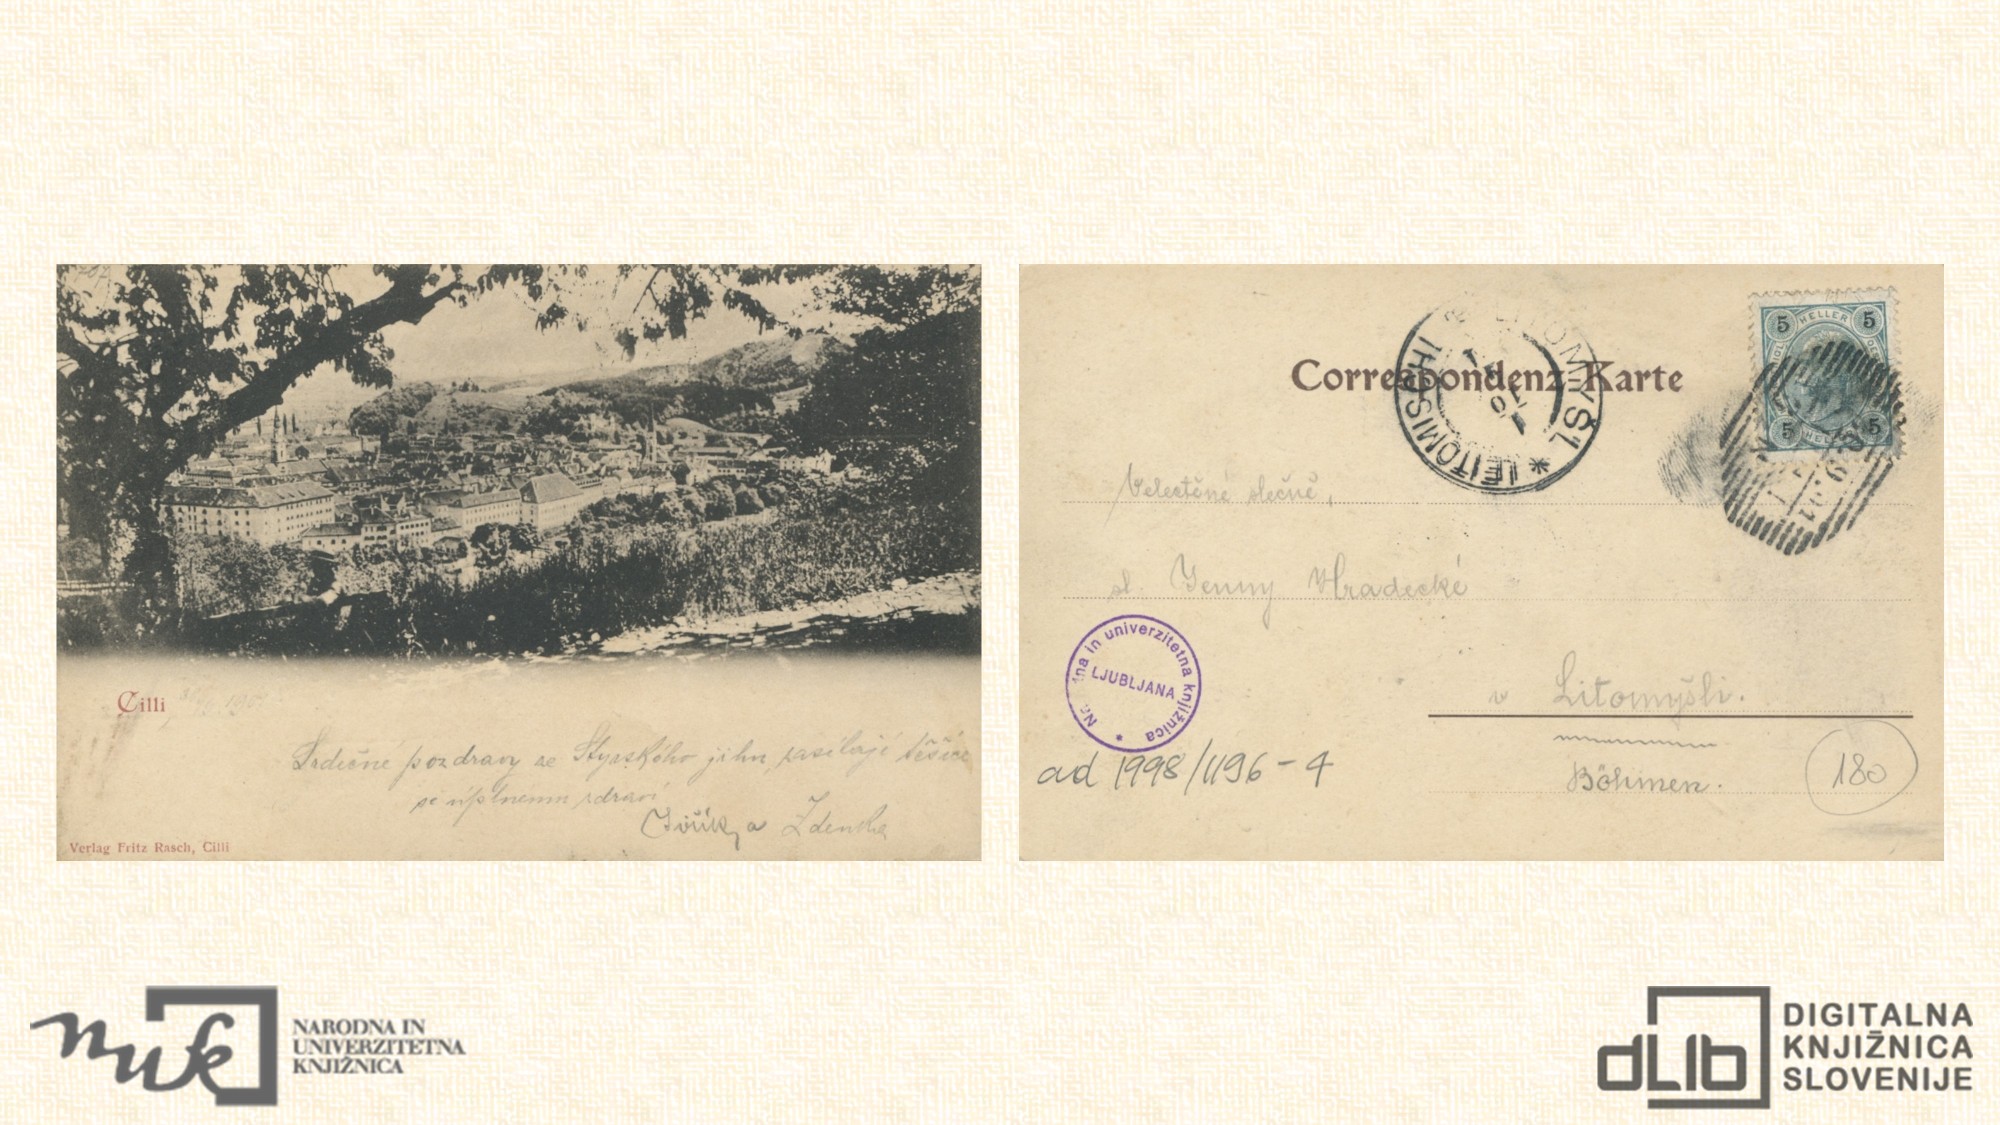 Cilli
Srdečné pozdravy ze Štyrského jihu, zasílají těšíce
se úplnému zdraví
a Zdenka
Verlag Fritz Rasch, Cilli
Correspondenz-Karte
LEITOMISCHL * LITOMYŠL
5 HELLER 5
5 5
Velectěné slečně,
sl. Jenny Hradecké
v Litomyšli.
Böhmen.
180
Na in univerzitetna knjižnica *
LJUBLJANA
ad 1998/1196-4
nuk
NARODNA IN
UNIVERZITETNA
KNJIŽNICA
dLib
DIGITALNA
KNJIŽNICA
SLOVENIJE